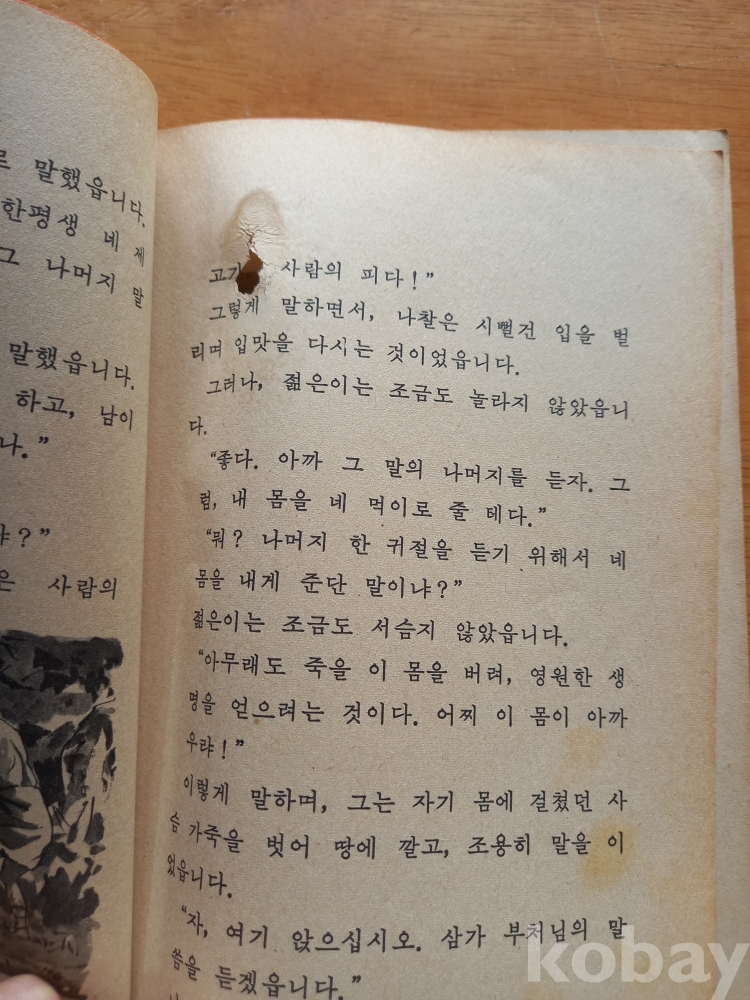 말했읍니다.
한평생 네 제
그 나머지 말
말했읍니다.
하고, 남이
나."
냐?"
은 사람의
사람의 피다!"
그렇게 말하면서, 나찰은 시뻘건 입을 벌
리며 입맛을 다시는 것이었읍니다.
그러나, 젊은이는 조금도 놀라지 않았읍니
다.
"좋다. 아까 그 말의 나머지를 듣자. 그
럼, 내 몸을 네 먹이로 줄 테다."
"뭐? 나머지 한 귀절을 듣기 위해서 네
몸을 내게 준단 말이냐?"
젊은이는 조금도 서슴지 않았읍니다.
"아무래도 죽을 이 몸을 버려, 영원한 생
명을 얻으려는 것이다. 어찌 이 몸이 아까
우랴!"
이렇게 말하며, 그는 자기 몸에 걸쳤던 사
슴 가죽을 벗어 땅에 깔고, 조용히 말을 이
었읍니다.
"자, 여기 앉으십시오. 삼가 부처님의 말
씀을 듣겠읍니다."
kobay